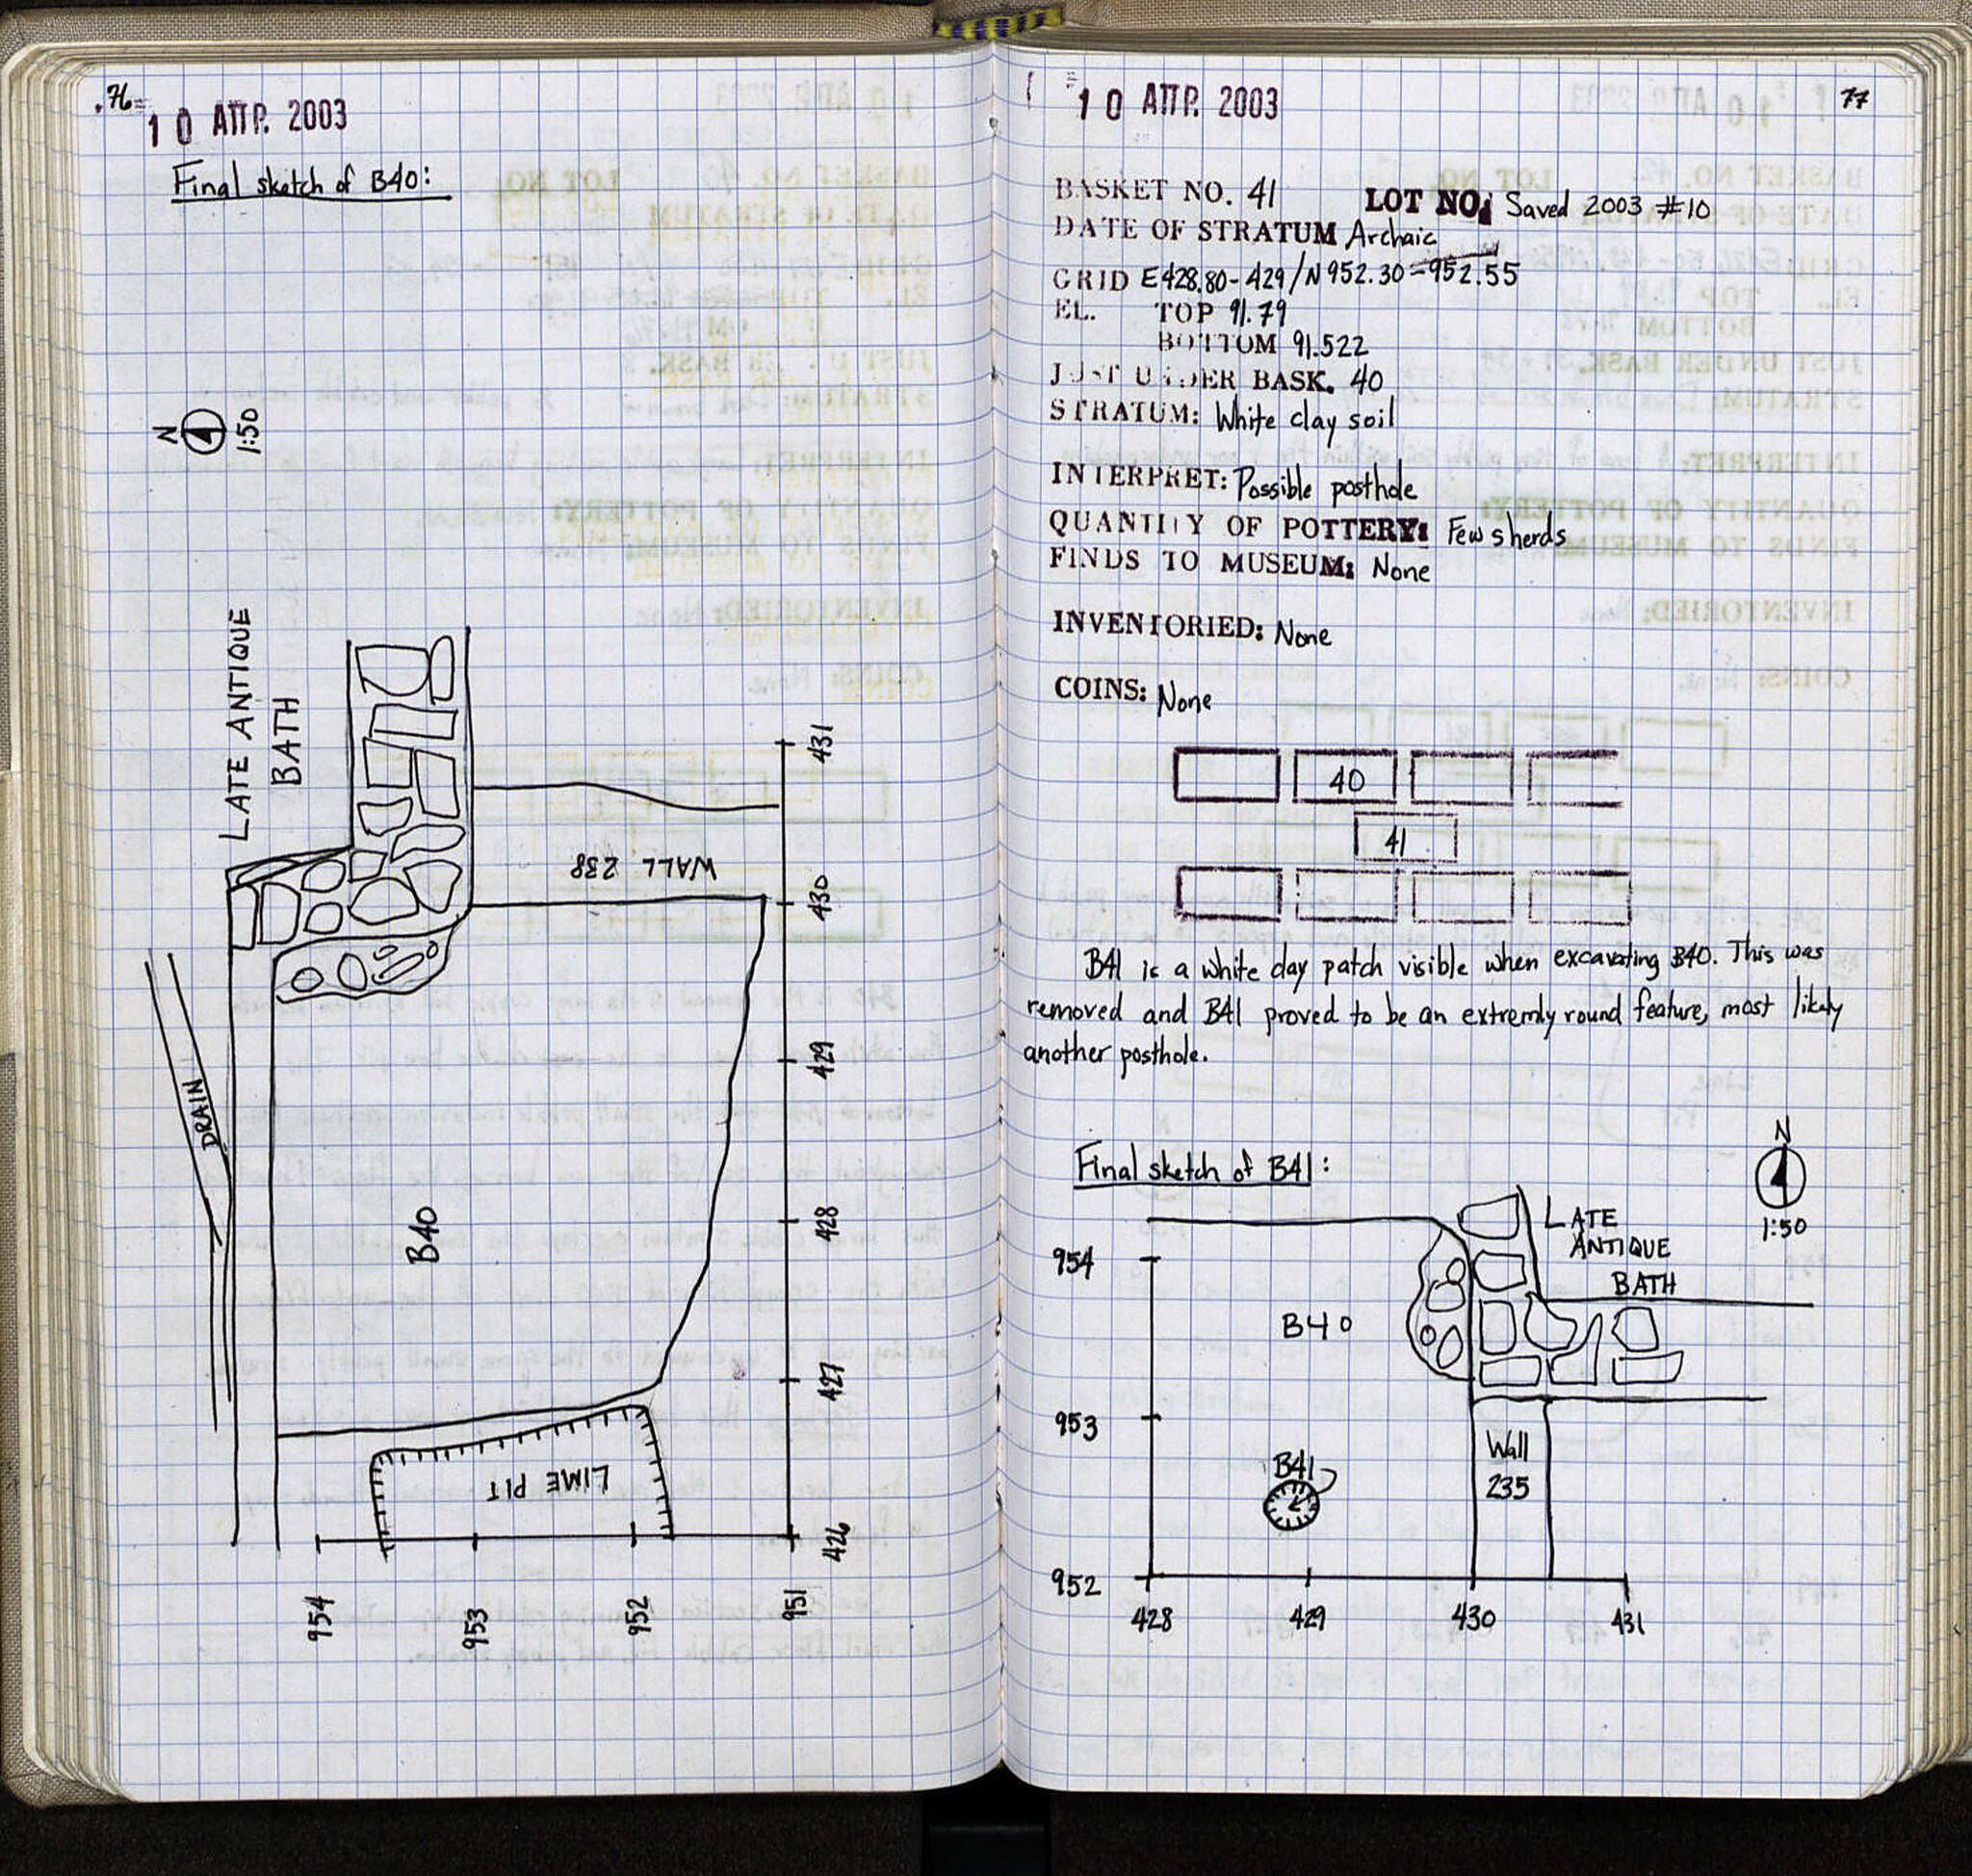 76
10 ΑΠΡ. 2003
Final sketch of B40:
N
1:50
LATE ANTIQUE
BATH
WALL 238
DRAIN
B40
LIME PIT
431
430
429
428
427
426
954
953
952
951
77
10 ΑΠΡ. 2003
BASKET NO. 41 LOT NO. Saved 2003 #10
DATE OF STRATUM Archaic
GRID E428.80-429/N952.30-952.55
EL. TOP 91.79
BOTTOM 91.522
JUST UNDER BASK. 40
STRATUM: White clay soil
INTERPRET: Possible posthole
QUANTITY OF POTTERY: Few sherds
FINDS TO MUSEUM: None
INVENTORIED: None
COINS: None
40
41
B41 is a white clay patch visible when excavating B40. This was
removed and B41 proved to be an extremly round feature, most likely
another posthole.
Final sketch of B41:
N
1:50
LATE
ANTIQUE
BATH
954
B40
953
B41
Wall
235
952
428 429 430 431